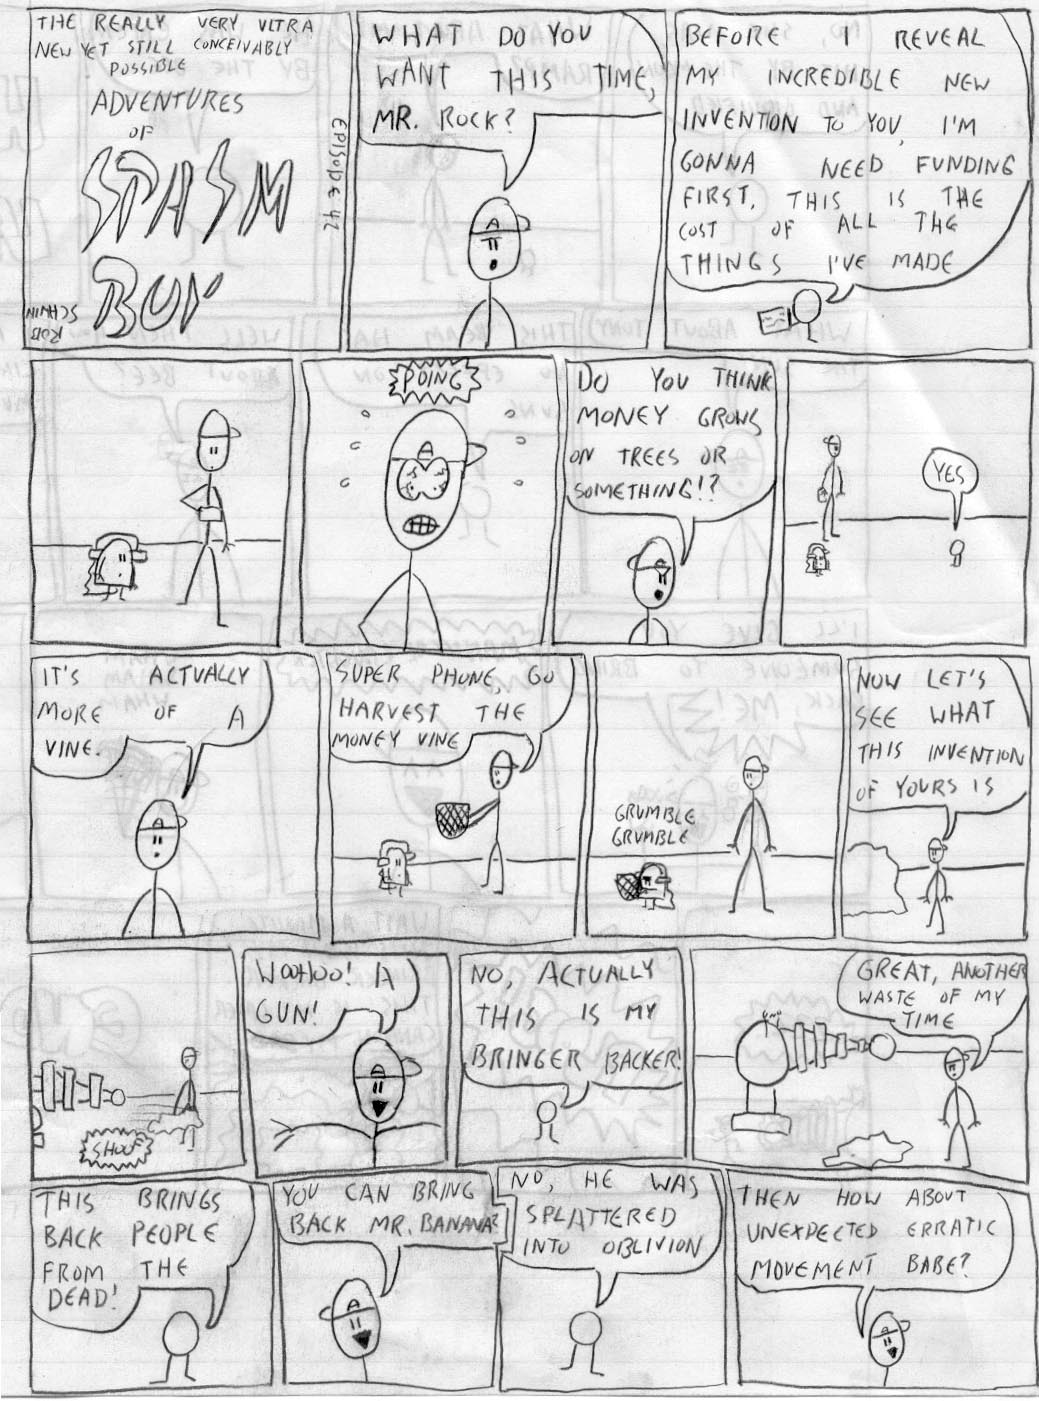 THE REALLY VERY ULTRA
NEW YET STILL CONCEIVABLY
POSSIBLE
ADVENTURES
OF
SPASM
BOY
EPISODE 42
ROB
SCHWIN
WHAT DO YOU
WANT THIS TIME,
MR. ROCK?
BEFORE I REVEAL
MY INCREDIBLE NEW
INVENTION TO YOU, I'M
GONNA NEED FUNDING
FIRST, THIS IS THE
COST OF ALL THE
THINGS I'VE MADE
POING
DO YOU THINK
MONEY GROWS
ON TREES OR
SOMETHING!?
YES
IT'S ACTUALLY
MORE OF A
VINE.
SUPER PHONE, GO
HARVEST THE
MONEY VINE
GRUMBLE
GRUMBLE
NOW LET'S
SEE WHAT
THIS INVENTION
OF YOURS IS
SHOOF
WOOHOO! A
GUN!
NO, ACTUALLY
THIS IS MY
BRINGER BACKER!
GREAT, ANOTHER
WASTE OF MY
TIME
THIS BRINGS
BACK PEOPLE
FROM THE
DEAD!
YOU CAN BRING
BACK MR. BANANA?
NO, HE WAS
SPLATTERED
INTO OBLIVION
THEN HOW ABOUT
UNEXPECTED ERRATIC
MOVEMENT BABE?